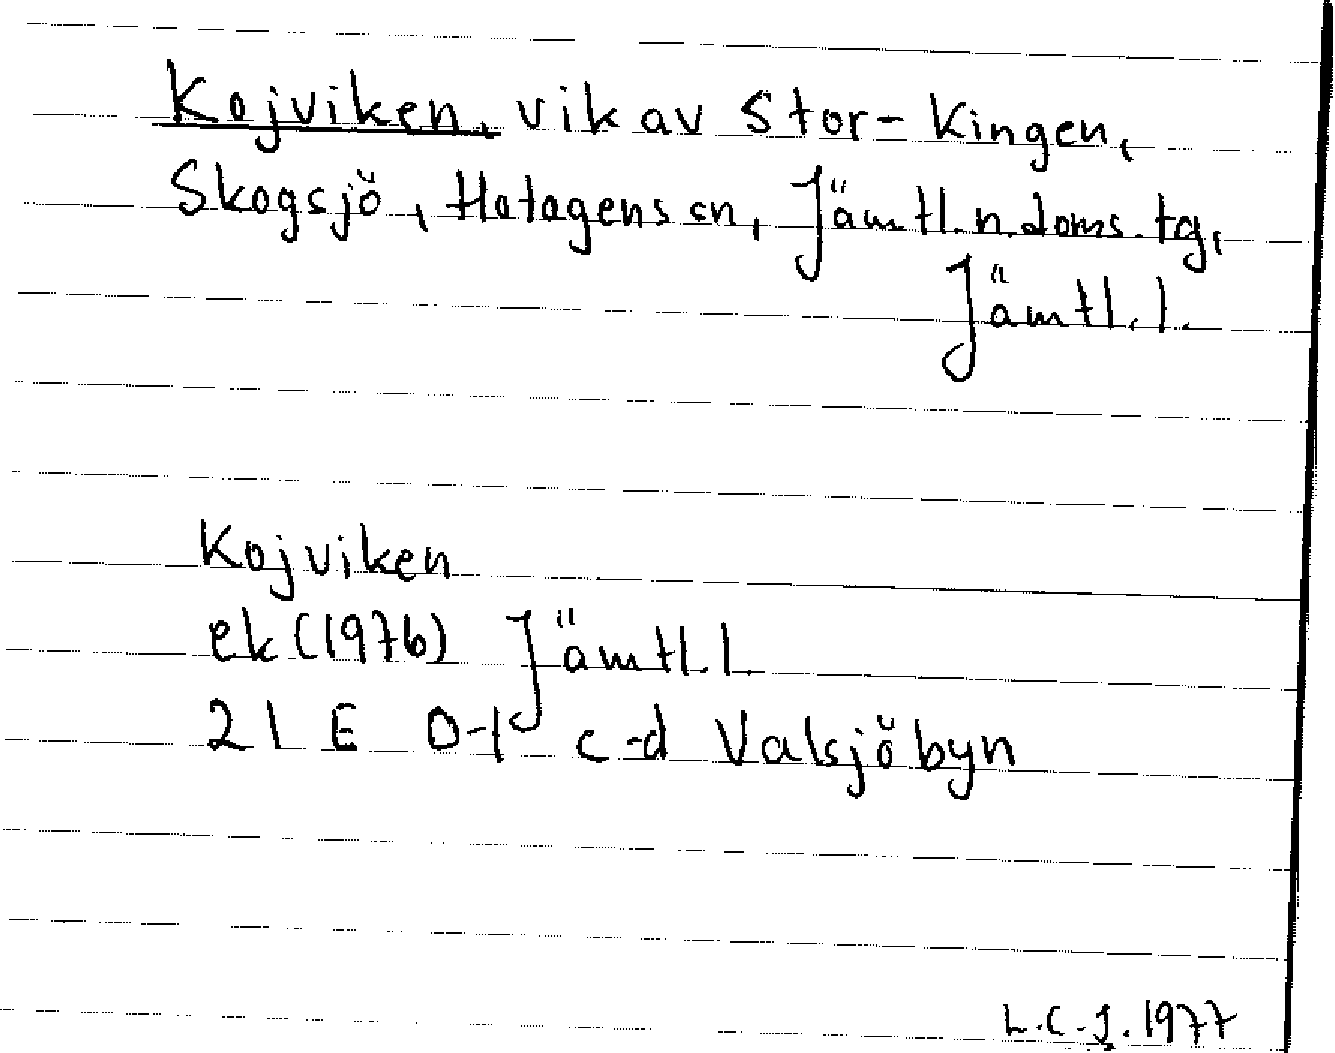 Kojviken, vik av Stor-Kingen,
Skogsjö, Hotagens sn, Jämtl. n. doms. tg,
Jämtl. l.
Kojviken
ek (1976) Jämtl. l.
21 E 0-1 c-d Valsjöbyn
L.C.J. 1977